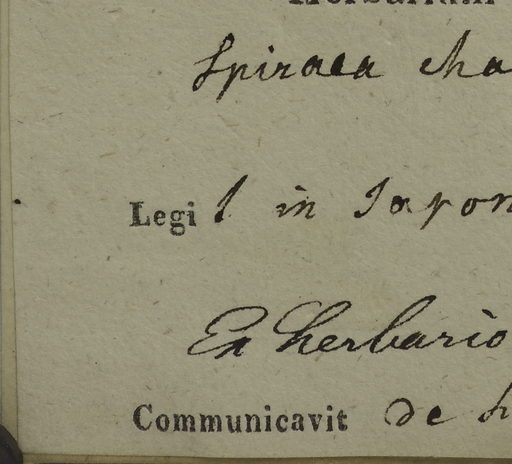 Herbarium
Spiraea cha
Legit in Japon
Ex herbario
Communicavit de